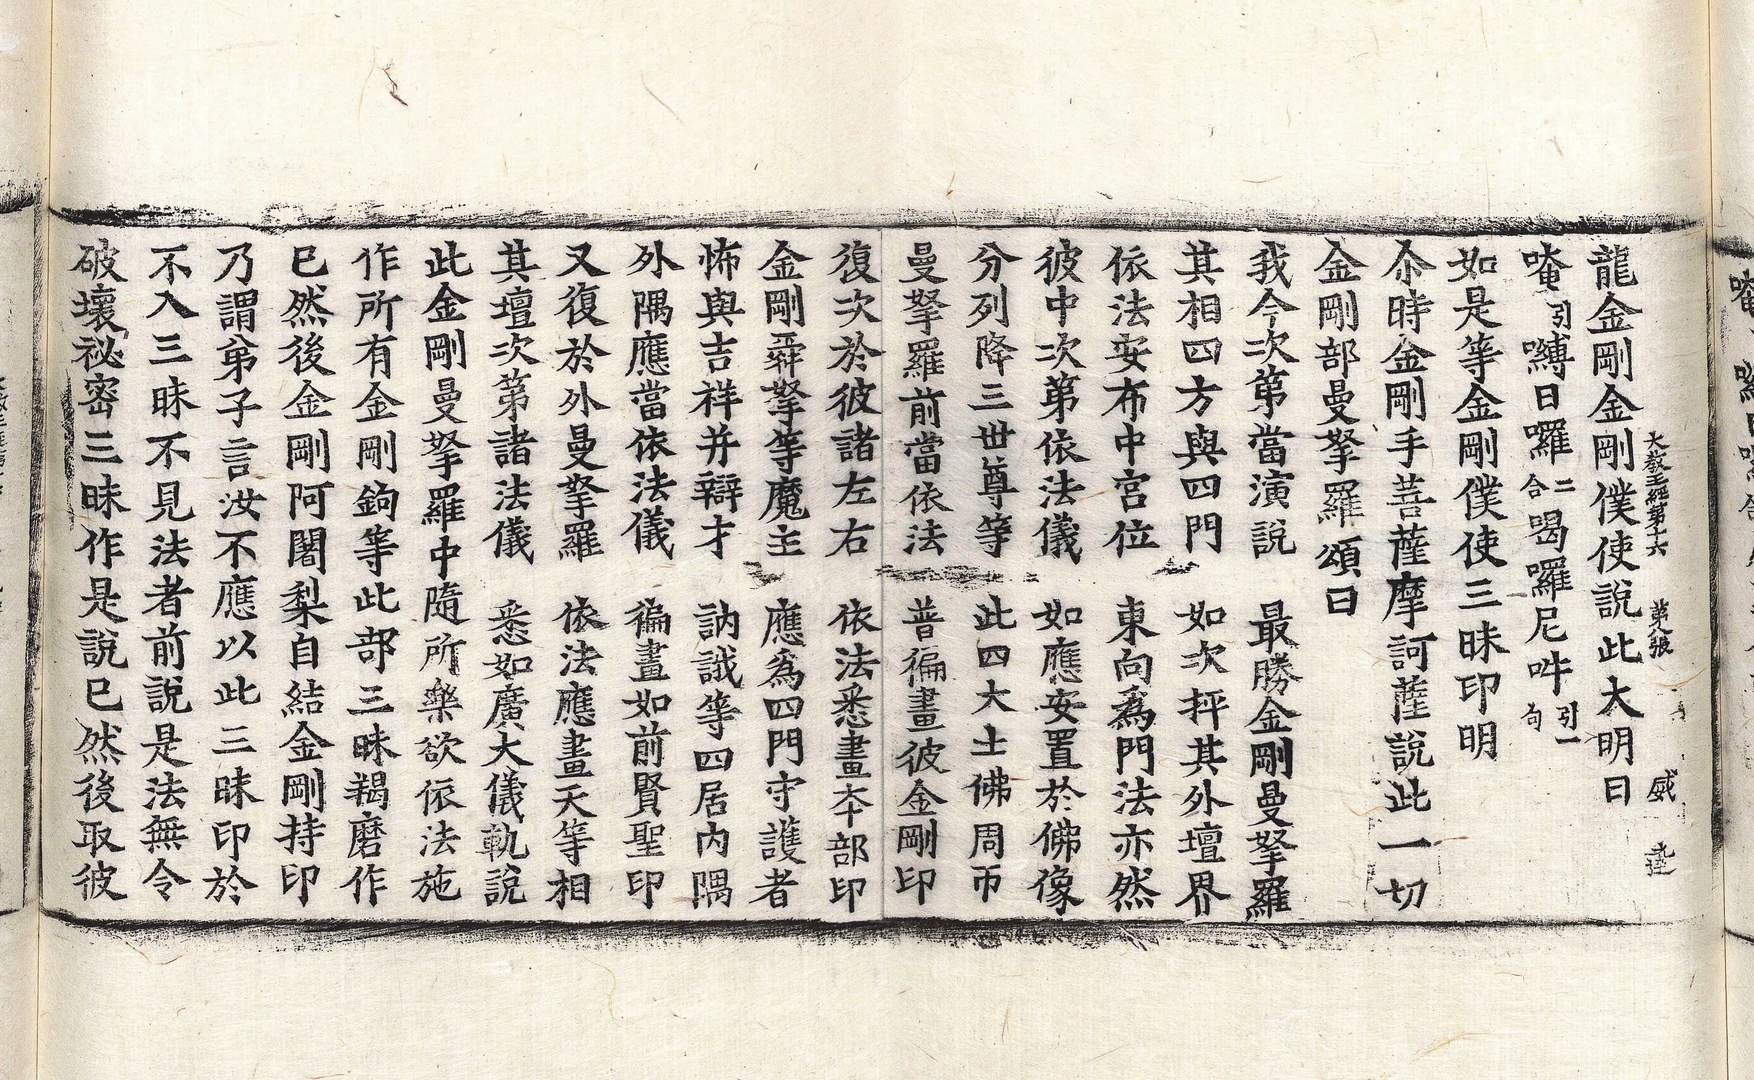 大教王經第十六 第八張 威
龍金剛金剛僕使說此大明曰
唵引嚩日囉二合喝囉尼吽引一句
如是等金剛僕使三昧印明
尒時金剛手菩薩摩訶薩說此一切
金剛部曼拏羅頌曰
我今次第當演說 最勝金剛曼拏羅
其相四方與四門 如次抨其外壇界
依法安布中宮位 東向爲門法亦然
彼中次第依法儀 如應安置於佛像
分列降三世尊等 此四大士佛周帀
曼拏羅前當依法 普徧畫彼金剛印
復次於彼諸左右 依法悉畫本部印
金剛舜拏等魔主 應爲四門守護者
怖與吉祥并辯才 訥誐等四居內隅
外隅應當依法儀 徧畫如前賢聖印
又復於外曼拏羅 依法應畫天等相
其壇次第諸法儀 悉如廣大儀軌說
此金剛曼拏羅中隨所樂欲依法施
作所有金剛鉤等此部三昧羯磨作
已然後金剛阿闍梨自結金剛持印
乃謂弟子言汝不應以此三昧印於
不入三昧不見法者前說是法無令
破壞祕密三昧作是說已然後取彼